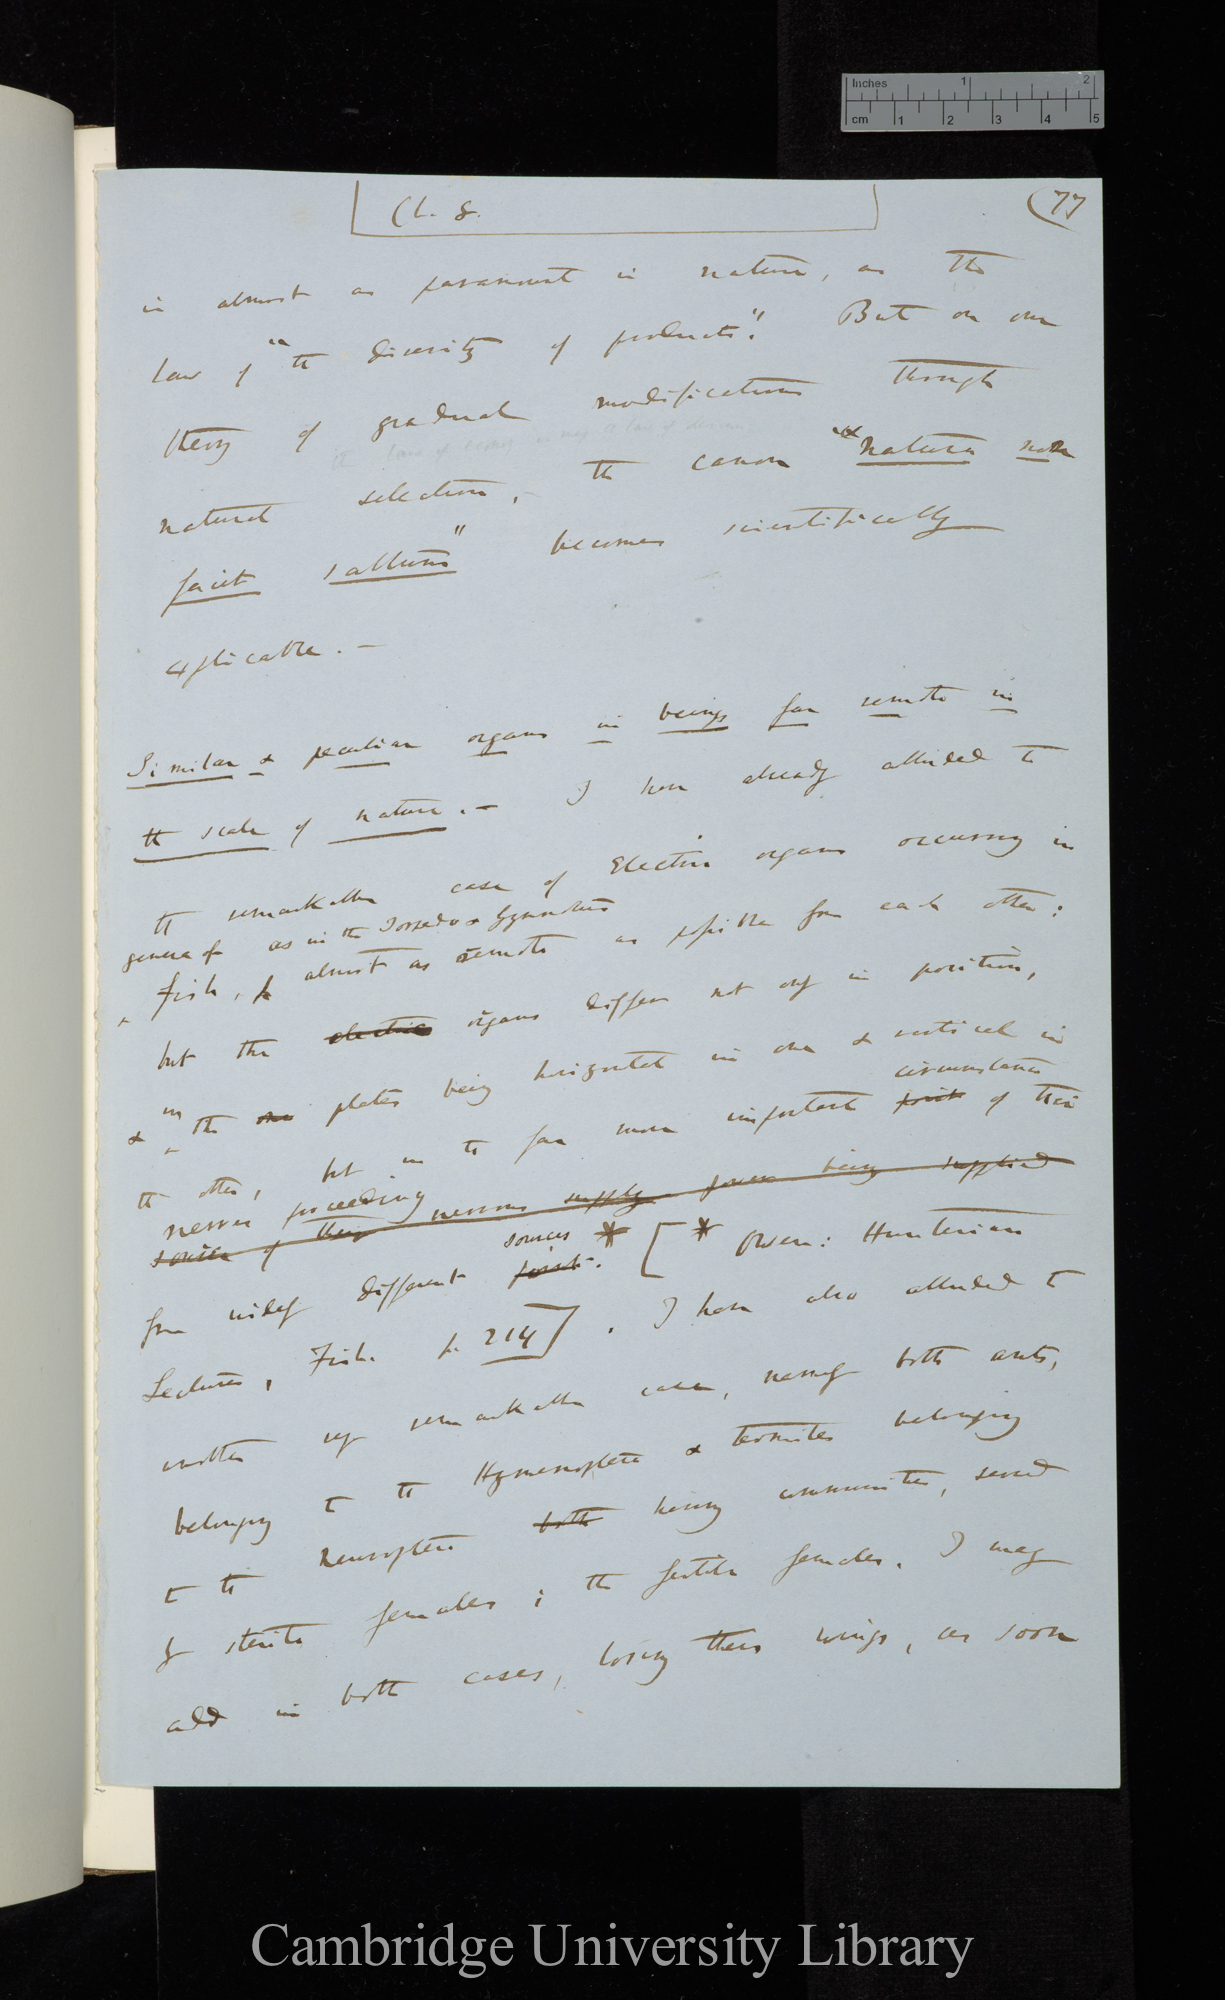 Inches 1 2
cm 1 2 3 4 5
Ch. 8.
77
is almost as paramount in nature, as the
law of "the diversity of products". But on our
theory of gradual modifications through
natural selection, the canon "natura non
facit saltum" becomes scientifically
explicable. —
Similar & peculiar organs in beings far remote in
the scale of nature. — I have already alluded to
the remarkable case of Electric organs occurring in
genera of as in the Torpedo & Gymnotus
fish, almost as remote as possible from each other;
but the electric organs differ not only in position,
& in the one plates being horizontal in one & vertical in
circumstance
the other, but in the far more important point of their
nerves proceeding
source of their nervous supply power being supplied
sources
from widely different point. * [* Owen: Hunterian
Lectures, Fish. p. 214]. I have also alluded to
another very remarkable case, namely both ants,
belonging to the Hymenoptera & termites belonging
to the Neuroptera both having communities, served
by sterile females; the fertile females. I may
add in both cases, losing their wings, as soon
Cambridge University Library